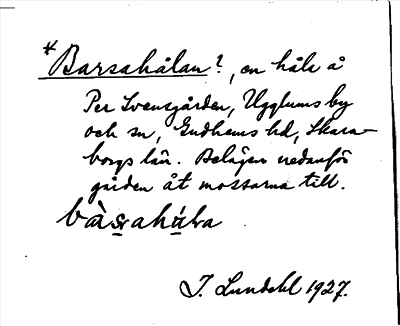 *Barsahålan?, en håle å
Per Svensgården, Ugglums by
och sn, Gudhems hd, Skara-
borgs län. Belägen nedanför
gården åt mossarna till.
bàsrahála
J. Lundahl 1927.